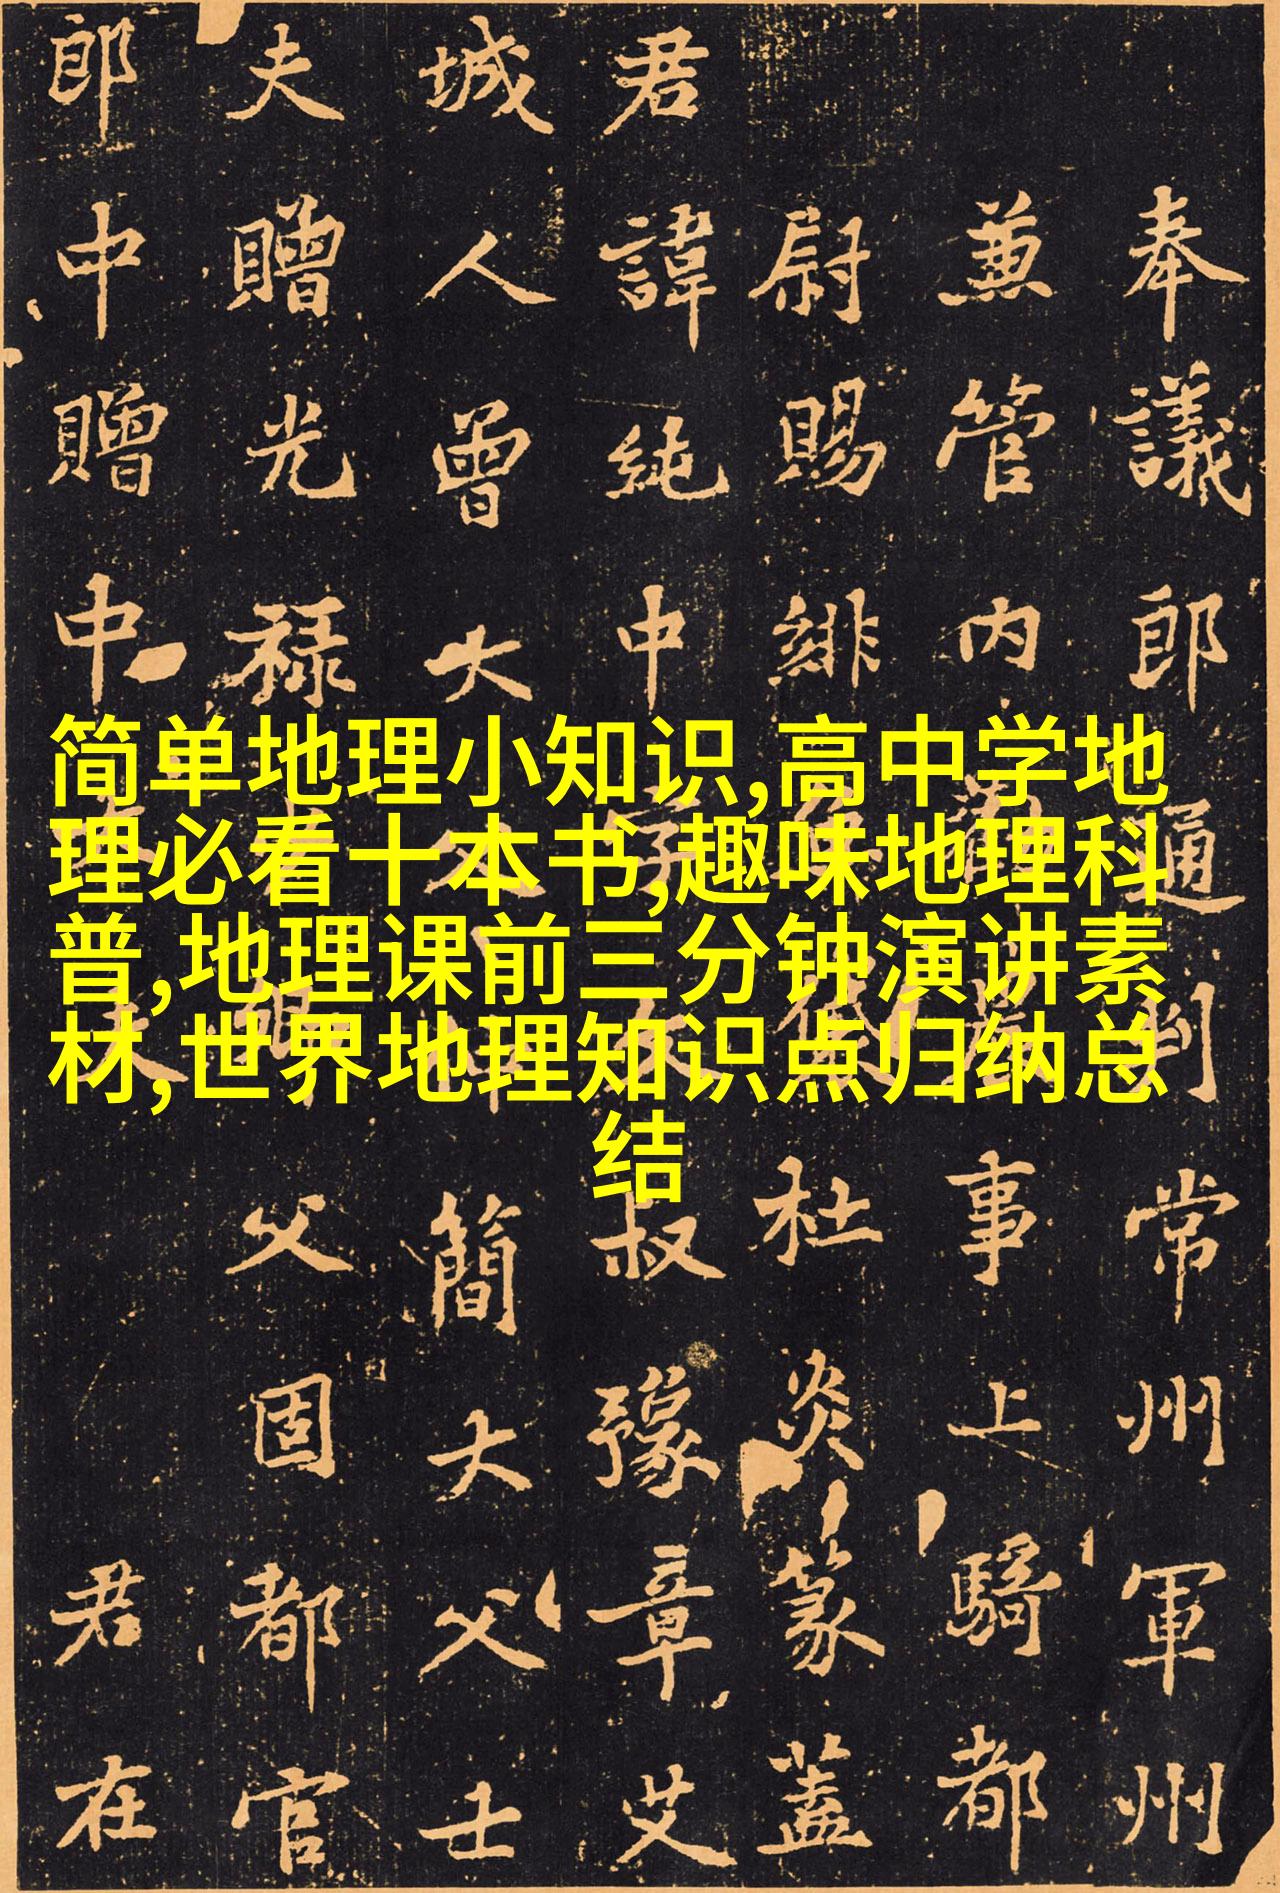 简单地理小知识,高中学地
理必看十本书,趣味地理科
普,地理课前三分钟演讲素
材,世界地理知识点归纳总
结
奉議郎通判常州軍州
兼管内事上騎都
尉賜緋杜炎篆蓋
君諱純中字叔豫章艾
城人曾大簡大父士
夫贈光禄父固都官
郎中贈中大夫君在